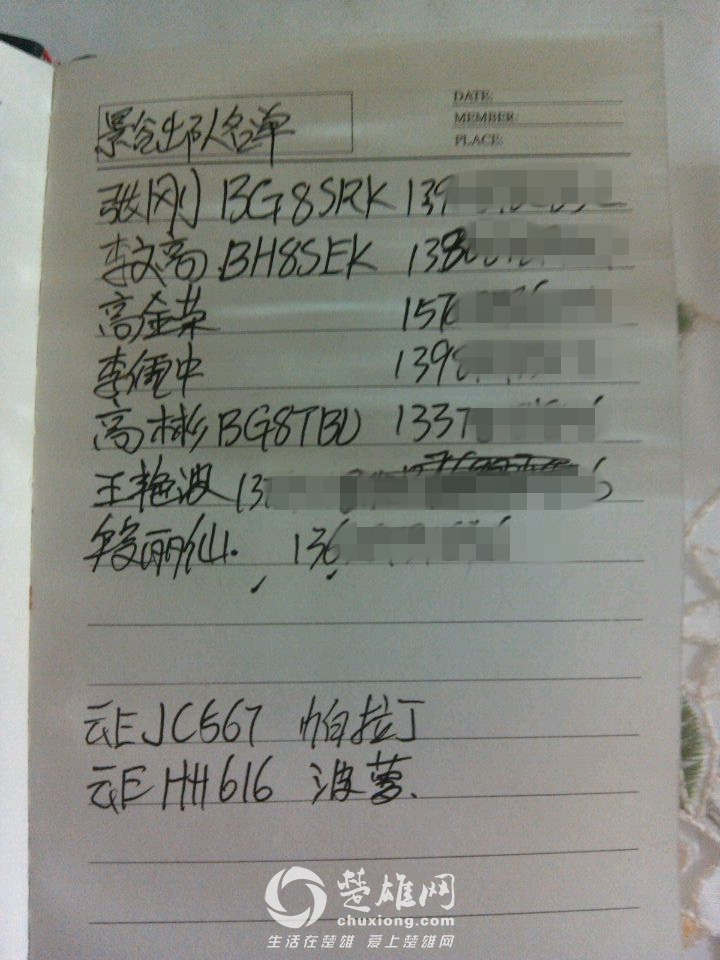 DATE:
MEMBER:
PLACE:
景谷出队名单
张刚 BG8SRK 139
李文高 BH8SEK 138
高金荣 157
李儒中 1398
高彬 BG8TBU 1337
王艳波 137
段丽仙. 136
云EJC567 帕拉丁
云EHH616 菠萝.
楚雄网
chuxiong.com
生活在楚雄 爱上楚雄网